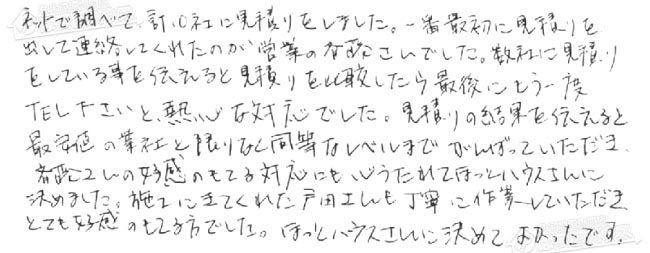 ネットで調べて、計10社に見積りをしました。一番最初に見積りを
出して連絡してくれたのが営業の香西さんでした。数社に見積り
をしている事を伝えると見積りを比較したら最後にもう一度
TEL下さいと、熱心な対応でした。見積りの結果を伝えると
最安値の業社と限りなく同等なレベルまでがんばっていただき、
さんの好感のもてる対応にも心うたれてほっとハウスさんに
決めました。施工に来てくれた戸田さんも丁寧に作業していただき
とても好感のもてる方でした。ほっとハウスさんに決めてよかったです。